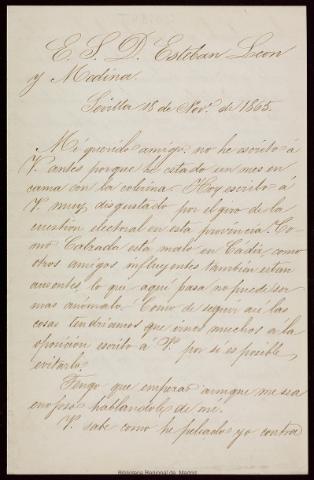 E. S. D. Esteban Leon
y Medina.
Sevilla 18 de Nov. de 1865.
Mi querido amigo: no he escrito á
V. antes porque he estado un mes en
cama con la colerina. Hoy escribo á
V. muy disgustado por el giro de la
cuestion electoral en esta provincia. Co-
mo Calzada está malo en Cádiz como
otros amigos influyentes tambien estan
ausentes, lo que aqui pasa no puede ser
mas anómalo. Como de seguir asi las
cosas tendriamos que irnos muchos á la
oposicion escribo á V. por si es posible
evitarlo.
Tengo que empezar aunque me sea
enojoso hablandole de mi.
V. sabe como he peleado yo contra
Biblioteca Regional de Madrid